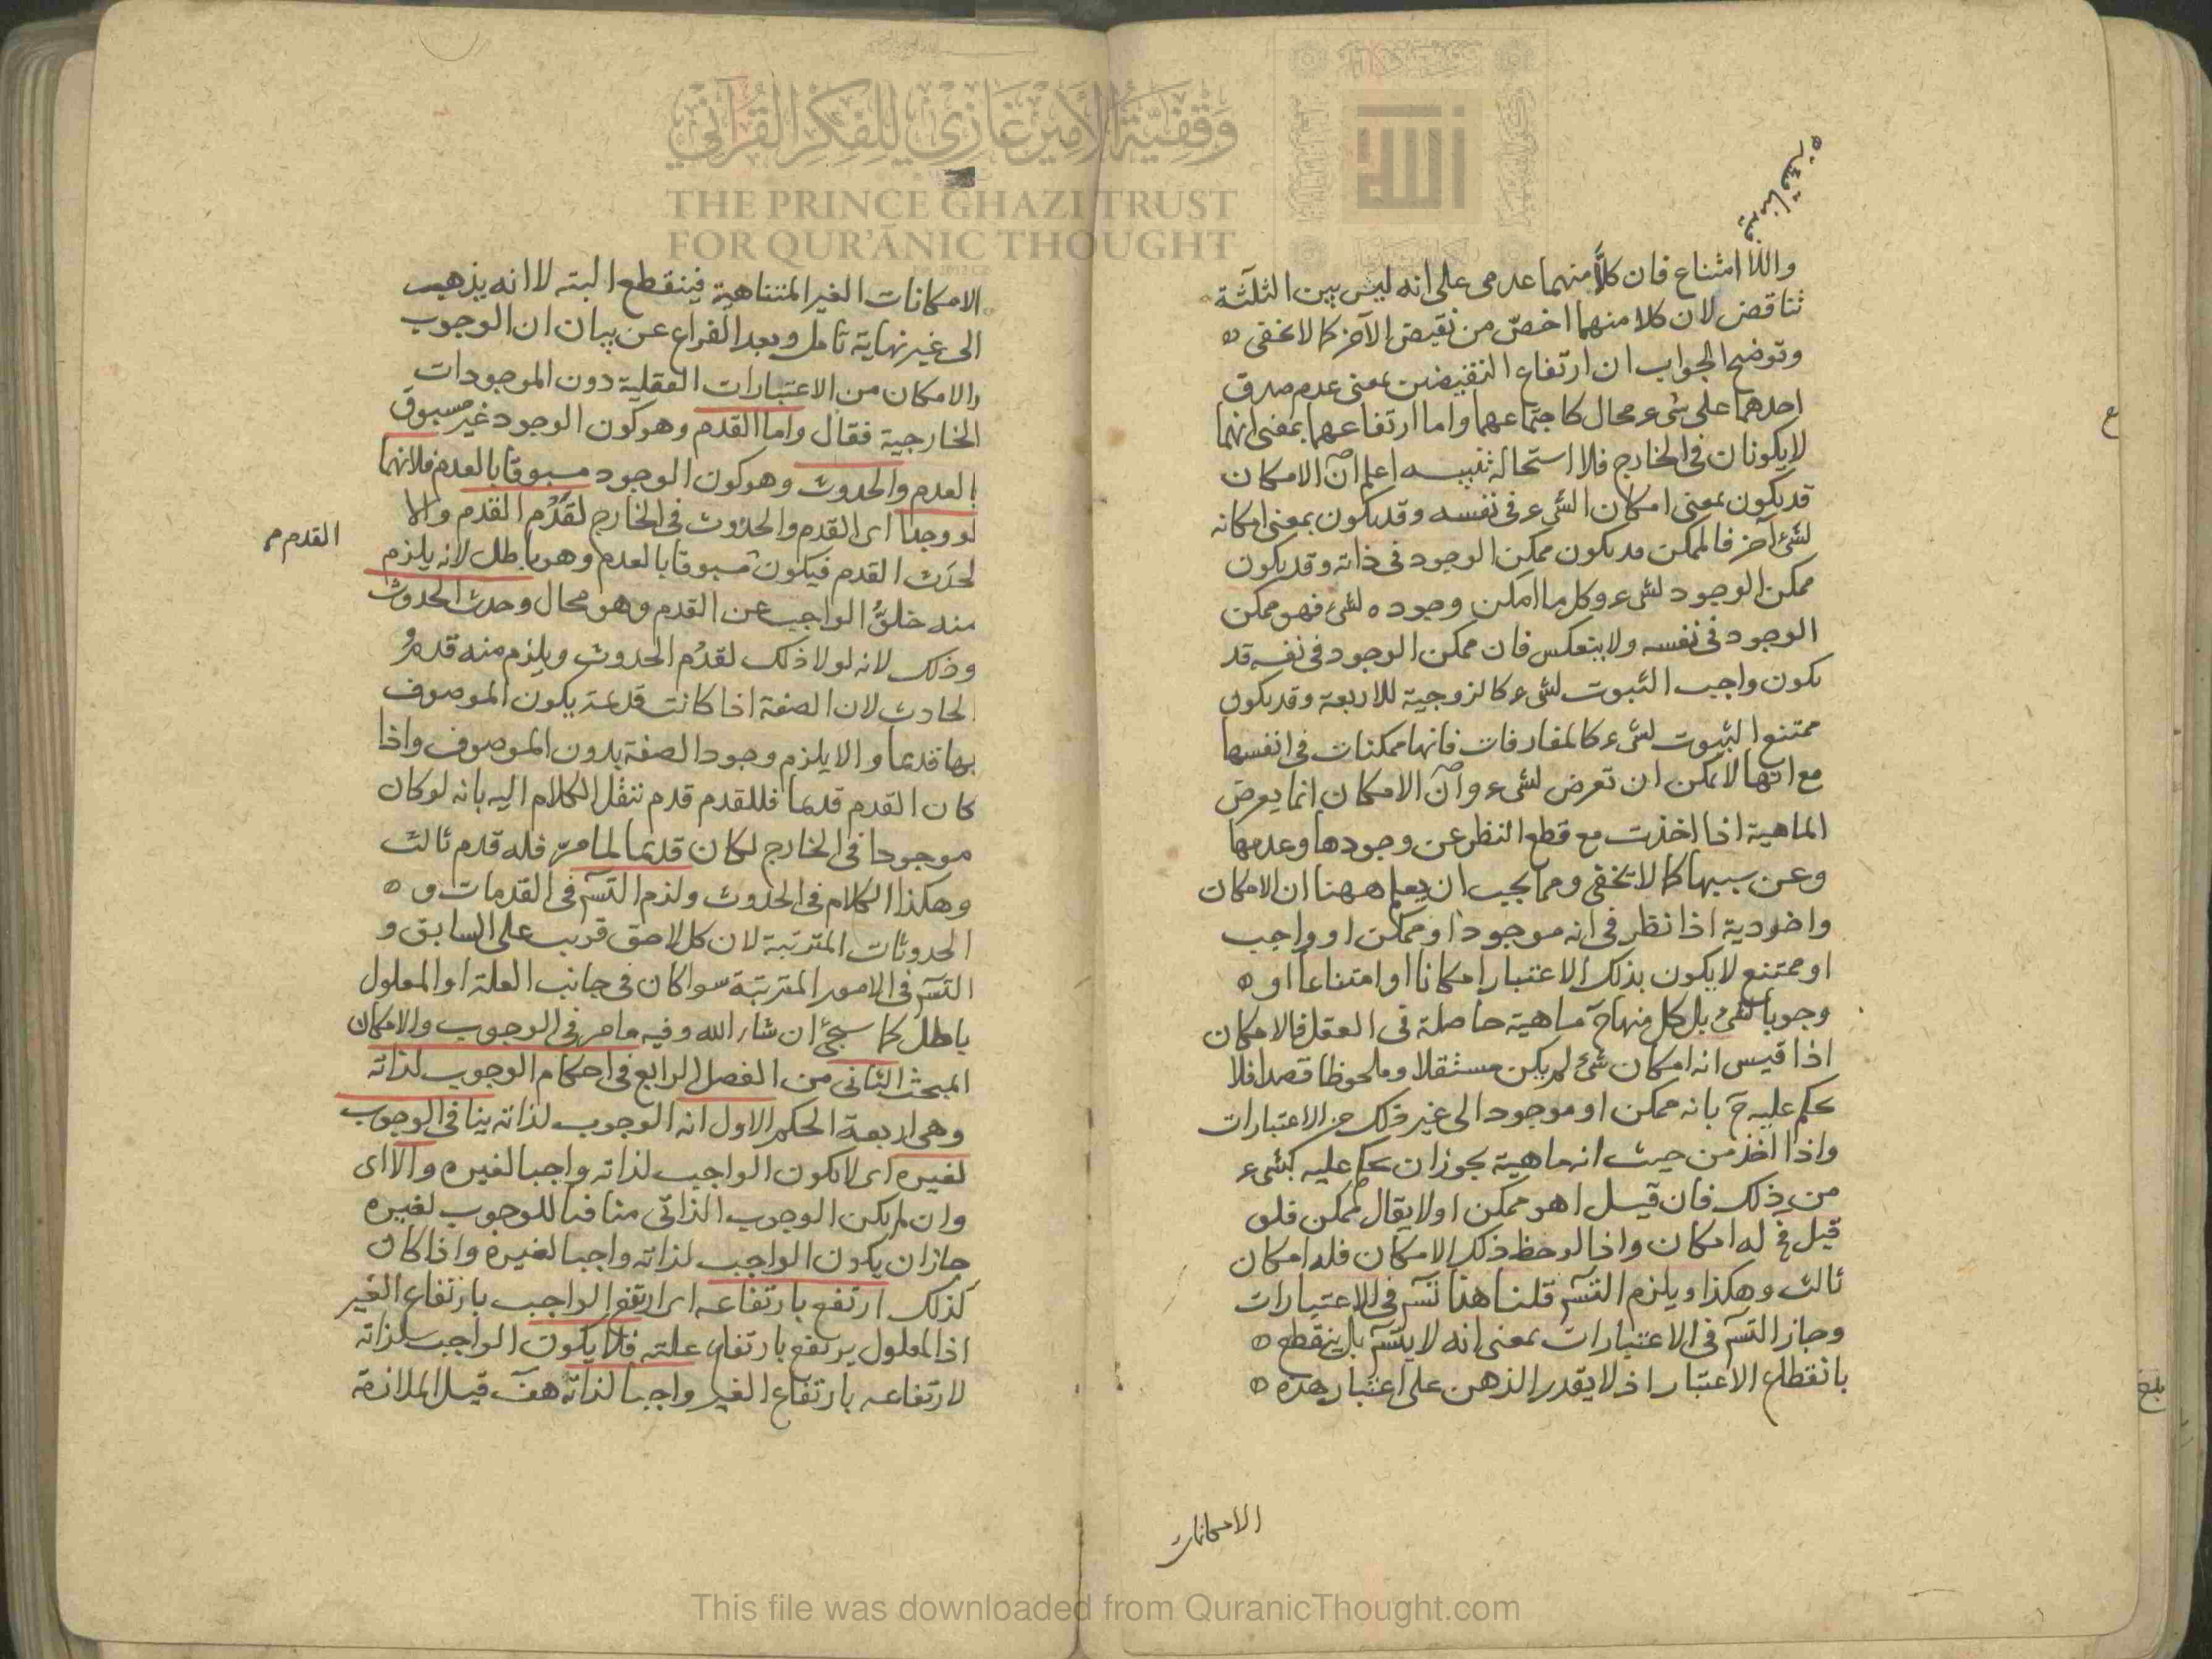 واللا امتناع فان كلاًّ منهما عدمى على انه ليس بين الثلثة
تناقض لان كلا منهما اخصّ من نقيض الآخر كما لا يخفى ه
وتوضيح الجواب ان ارتفاع النقيضين بمعنى عدم صدق
احدهما على شىء محال كاجتماعهما واما ارتفاعهما بمعنى انهما
لا يكونان فى الخارج فلا استحالة تنبيه اعلم انّ الامكان
قد يكون بمعنى امكان الشىء فى نفسه وقد يكون بمعنى امكانه
لشئ آخر فالممكن قد يكون ممكن الوجود فى ذاته وقد يكون
ممكن الوجود لشىء وكل ما امكن وجوده لشئ فهو ممكن
الوجود فى نفسه ولا ينعكس فان ممكن الوجود فى نفسه قد
يكون واجب الثبوت لشىء كالزوجية للاربعة وقد يكون
ممتنع الثبوت لشىء كالمفارقات فانها ممكنات فى انفسها
مع انها لا يمكن ان تعرض لشىء وانّ الامكان انما يعرض
الماهية اذا اخذت مع قطع النظر عن وجودها وعدمها
وعن سببها كما لا يخفى ومما يجب ان يعلم ههنا ان الامكان
واخوديه اذا نظر فى انه موجود او ممكن او واجب
او ممتنع لا يكون بذلك الاعتبار امكانا او امتناعا او ه
وجوبا لشئ بل كل منها ح ماهية حاصلة فى العقل فالامكان
اذا قيس انه امكان شئ لم يكن مستقلا وملحوظا قصدا فلا
يحكم عليه ح بانه ممكن او موجود الى غير ذلك من الاعتبارات
واذا اخذ من حيث انه ماهية يجوز ان يحكم عليه بشىء
من ذلك فان قيل اهو ممكن اولا يقال ممكن فلو
قيل فح له امكان واذا لوحظ ذلك الامكان فله امكان
ثالث وهكذا ويلزم التسَ قلنا هذا تسَ فى الاعتبارات
وجاز التسَ فى الاعتبارات بمعنى انه لا يتسَ بل ينقطع ه
بانقطاع الاعتبار اذ لا يقدر الذهن على اعتبار هذه ه
الامكانات
الامكانات الغير المتناهية فينقطع البته لا انه يذهب
الى غير نهاية تامل وبعد الفراغ عن بيان ان الوجوب
والامكان من الاعتبارات العقلية دون الموجودات
الخارجية فقال واما القدم وهو كون الوجود غير مسبوق
بالعدم والحدوث وهو كون الوجود مسبوقا بالعدم فلانهما
لو وجدا اى القدم والحدوث فى الخارج لقدُم القدم والا
لحدَث القدم فيكون مسبوقا بالعدم وهو باطل لانه يلزم
القدم م
منه خلوُّ الواجب عن القدم وهو محال وحدث الحدوث
وذلك لانه لولا ذلك لقدُم الحدوث ويلزم منه قدمُ
الحادث لان الصفة اذا كانت قديمة يكون الموصوف
بها قديما والا يلزم وجود الصفة بدون الموصوف واذا
كان القدم قديما فللقدم قدم ننقل الكلام اليه بانه لو كان
موجودا فى الخارج لكان قديما لما مرّ فله قدم ثالث
وهكذا الكلام فى الحدوث ولزم التسَ فى القدمات و ه
الحدوثات المترتبة لان كل لاحق قريب على السابق و
التسَ فى الامور المترتبة سوا كان فى جانب العلة او المعلول
باطل كما سيجئ ان شاء الله وفيه ما مر فى الوجوب والامكان
المبحث الثانى من الفصل الرابع فى احكام الوجوب لذاته
وهى اربعة الحكم الاول انه الوجوب لذاته ينافى الوجوب
لغيره اى لا يكون الواجب لذاته واجبا لغيره والا اى
وان لم يكن الوجوب الذاتى منافيا للوجوب لغيره
جاز ان يكون الواجب لذاته واجبا لغيره واذا كان
كذلك ارتفع بارتفاعه اى ارتفع الواجب بارتفاع الغير
اذ المعلول يرتفع بارتفاع علته فلا يكون الواجب لذاته
لارتفاعه بارتفاع الغير واجبا لذاته هف قيل الملازمة
وَقْفِيَّةُ الأَمِيرِ غَازِي لِلْفِكْرِ القُرْآنِيِّ
THE PRINCE GHAZI TRUST
FOR QUR'ĀNIC THOUGHT
This file was downloaded from QuranicThought.com